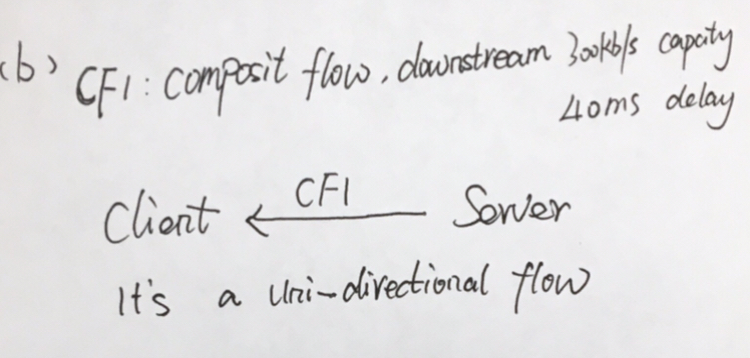 (b) CF1: composit flow, downstream 300kb/s capacity
40ms delay
CF1
Client ← Server
It's a Uni-directional flow